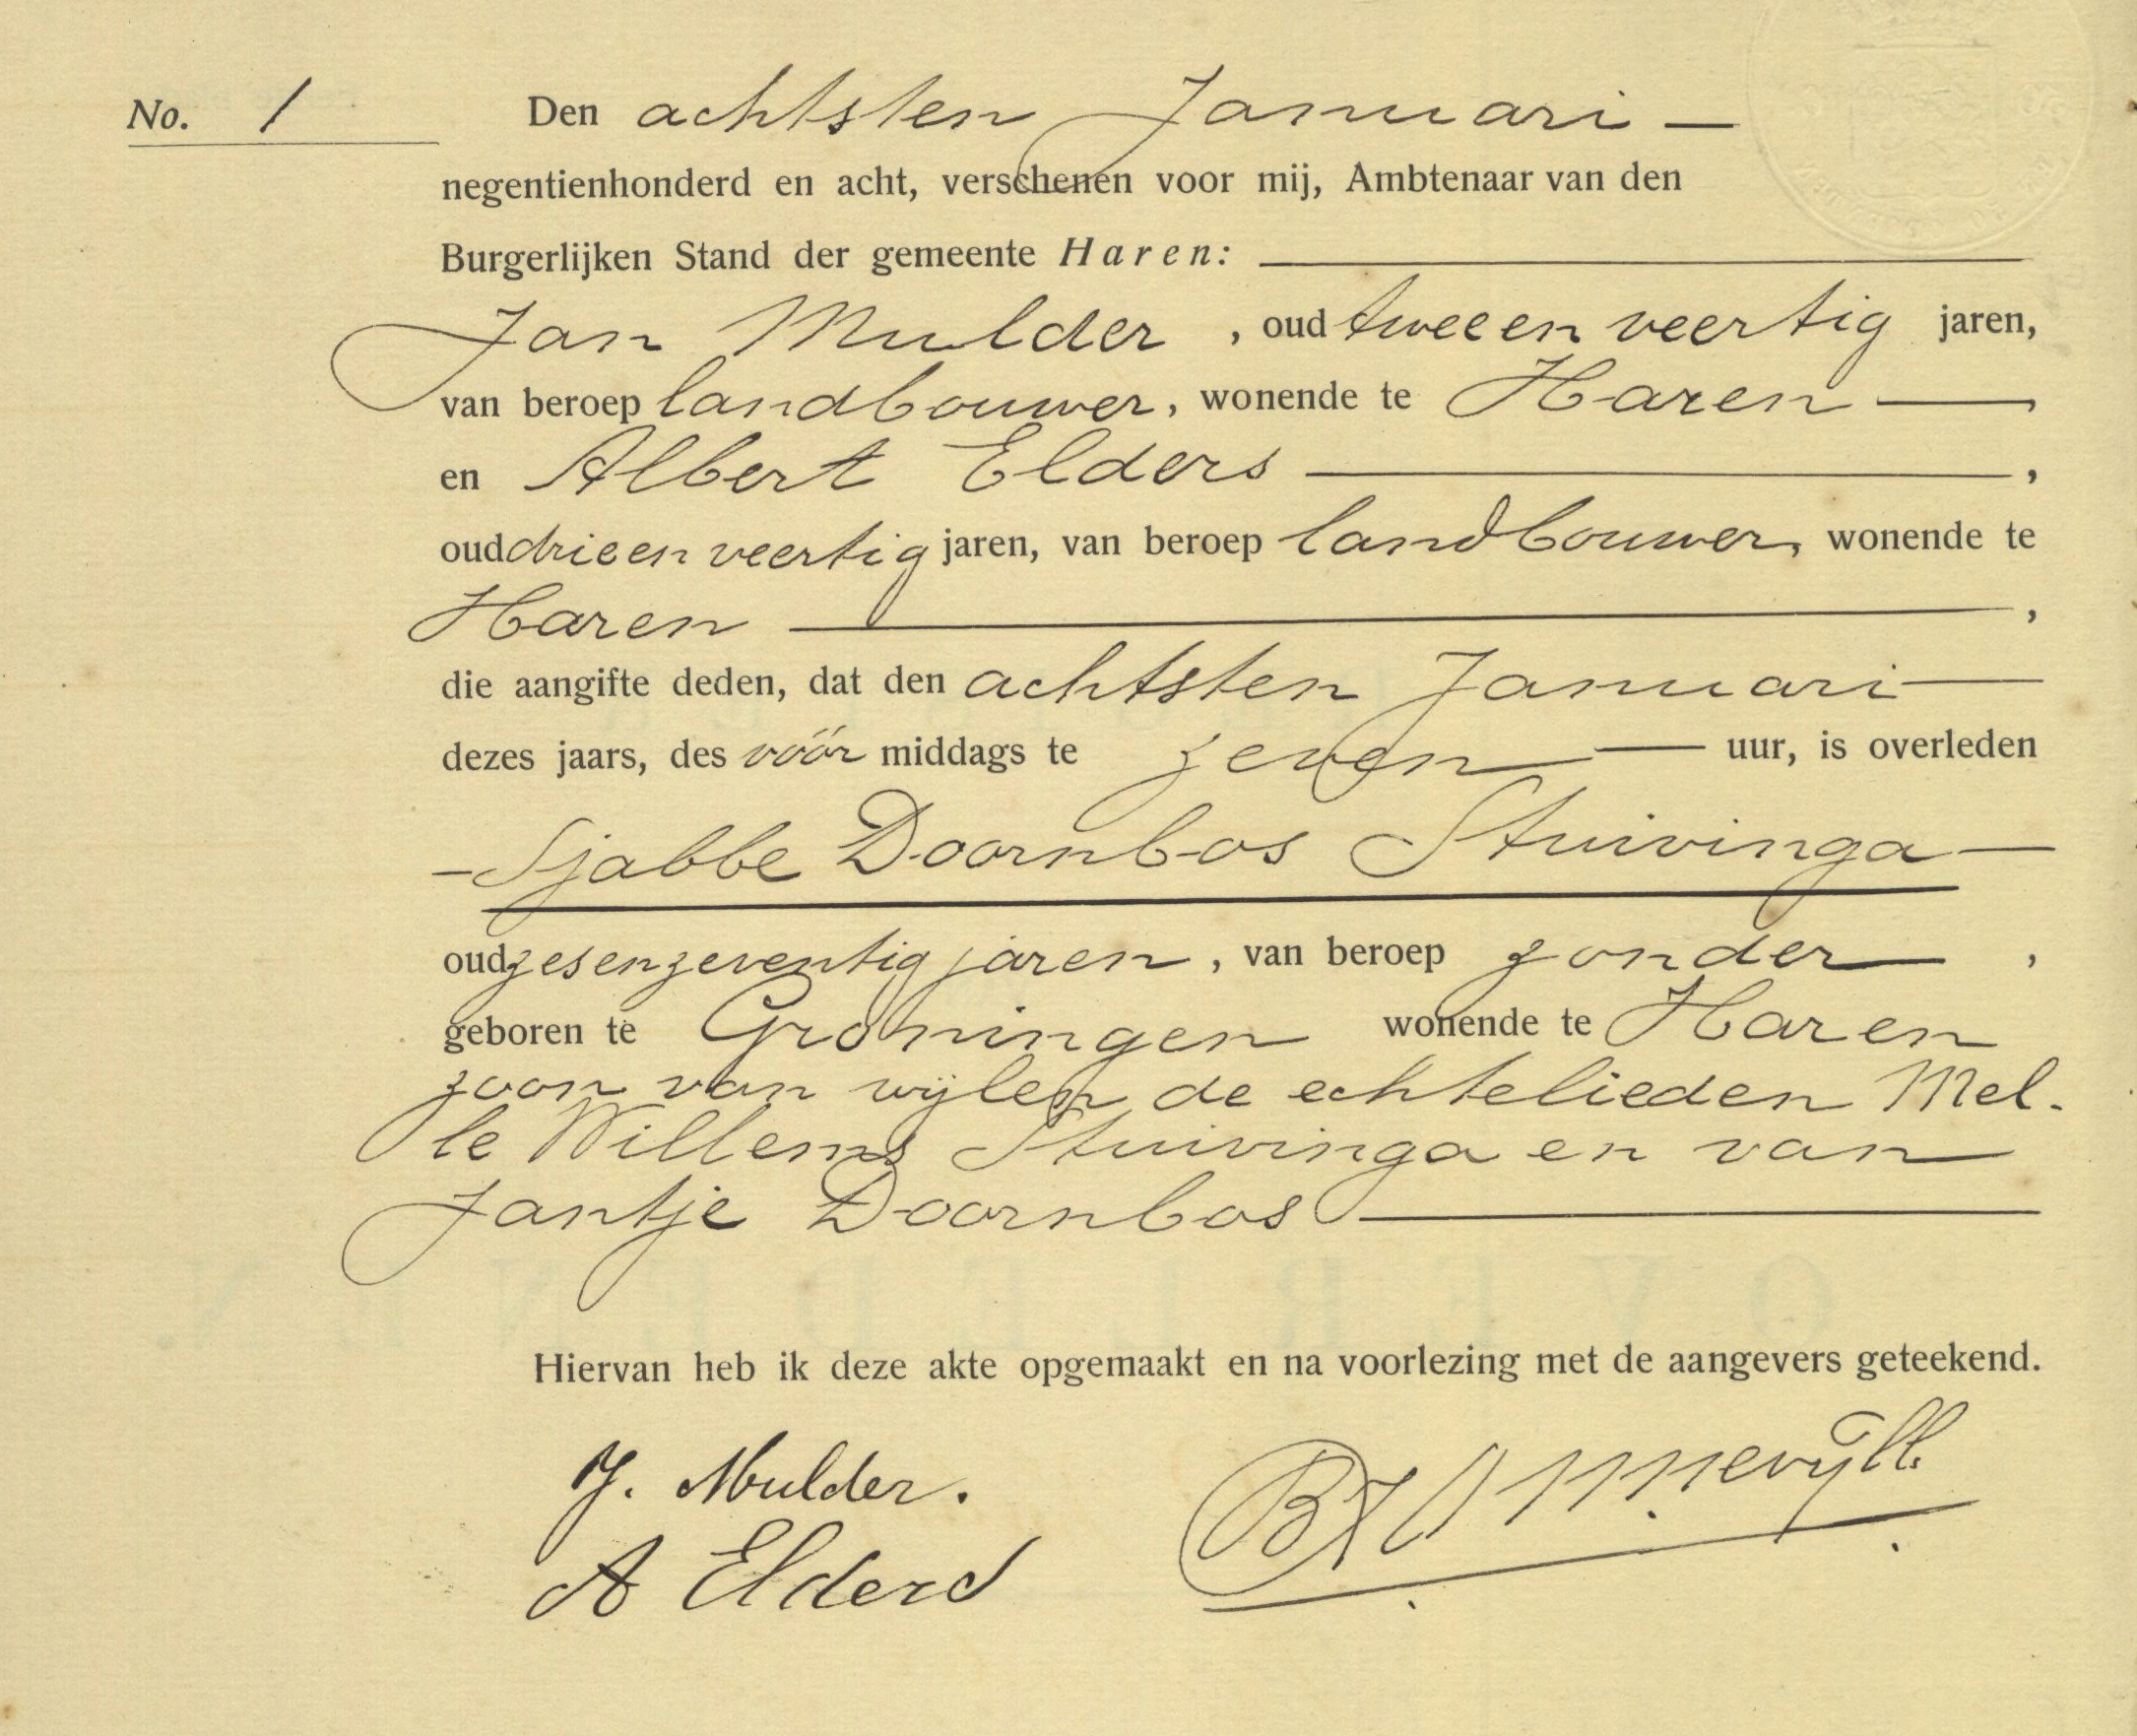 No. 1 Den achtsten Januari —
negentienhonderd en acht, verschenen voor mij, Ambtenaar van den
Burgerlijken Stand der gemeente Haren:
Jan Mulder , oud twee en veertig jaren,
van beroep landbouwer, wonende te Haren — ,
en Albert Elders — ,
oud drie en veertig jaren, van beroep landbouwer, wonende te
Haren — ,
die aangifte deden, dat den achtsten Januari —
dezes jaars, des vóór middags te zeven — uur, is overleden
— Sjabbe Doornbos Stuivinga —
oud zesenzeventig jaren , van beroep zonder — ,
geboren te Groningen wonende te Haren
zoon van wijlen de echtelieden Mel-
le Willems Stuivinga en van
Jantje Doornbos —
Hiervan heb ik deze akte opgemaakt en na voorlezing met de aangevers geteekend.
J. Mulder.
A Elders